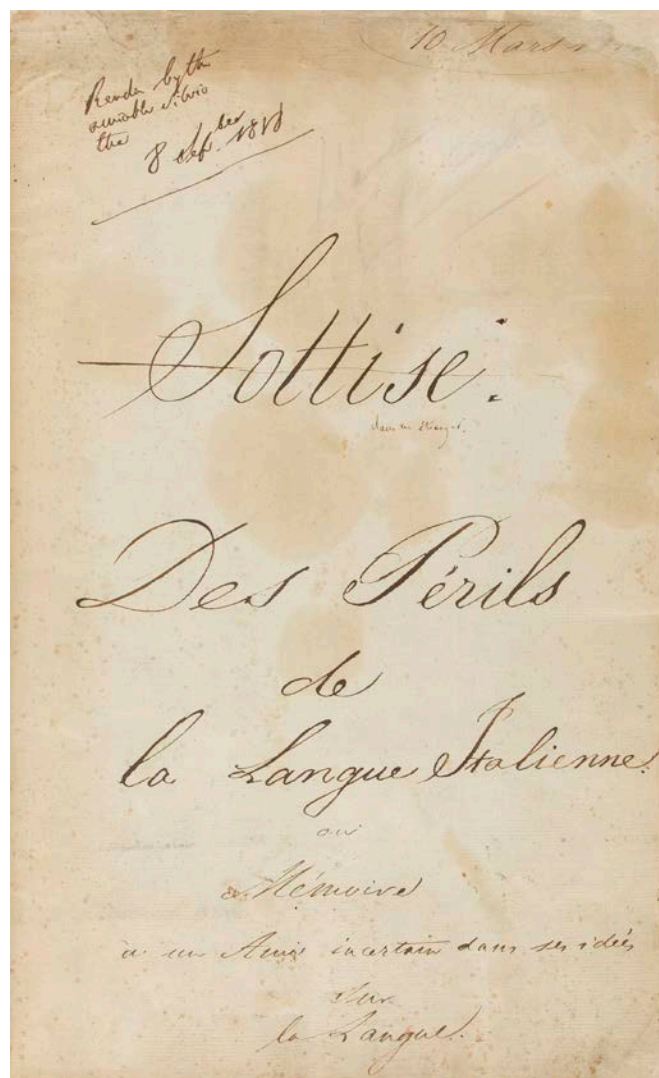 10 Mars
Render by the
amiable Silvio
the
8 Sep.ber 1818
Sottise.
dans un étranger.
Des Périls
de
la Langue Italienne.
ou
Mémoire
à un Ami incertain dans ses idées
sur
la Langue.